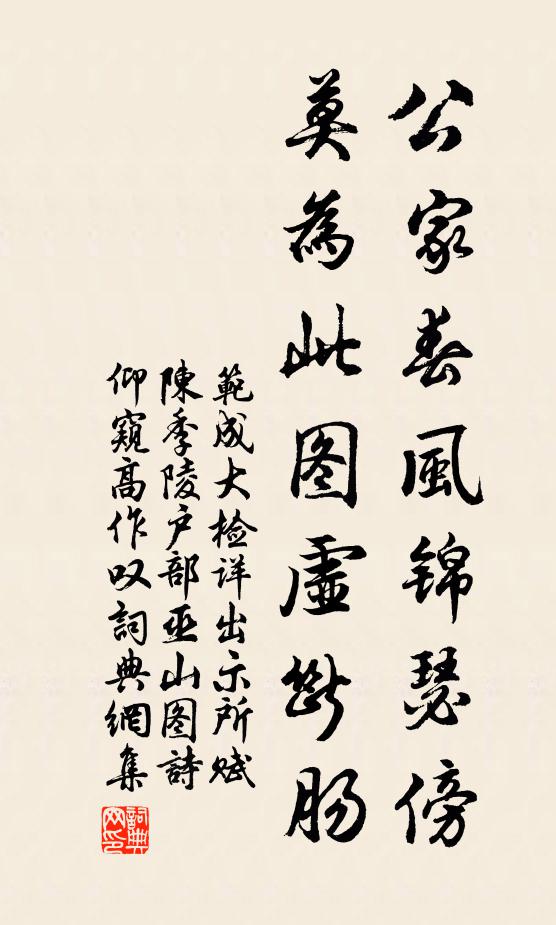 公家春風錦瑟傍
莫為此图虛斷肠
範成大检详出示所赋
陳季陵户部巫山图詩
仰窺高作叹詞典網集
詞典网印